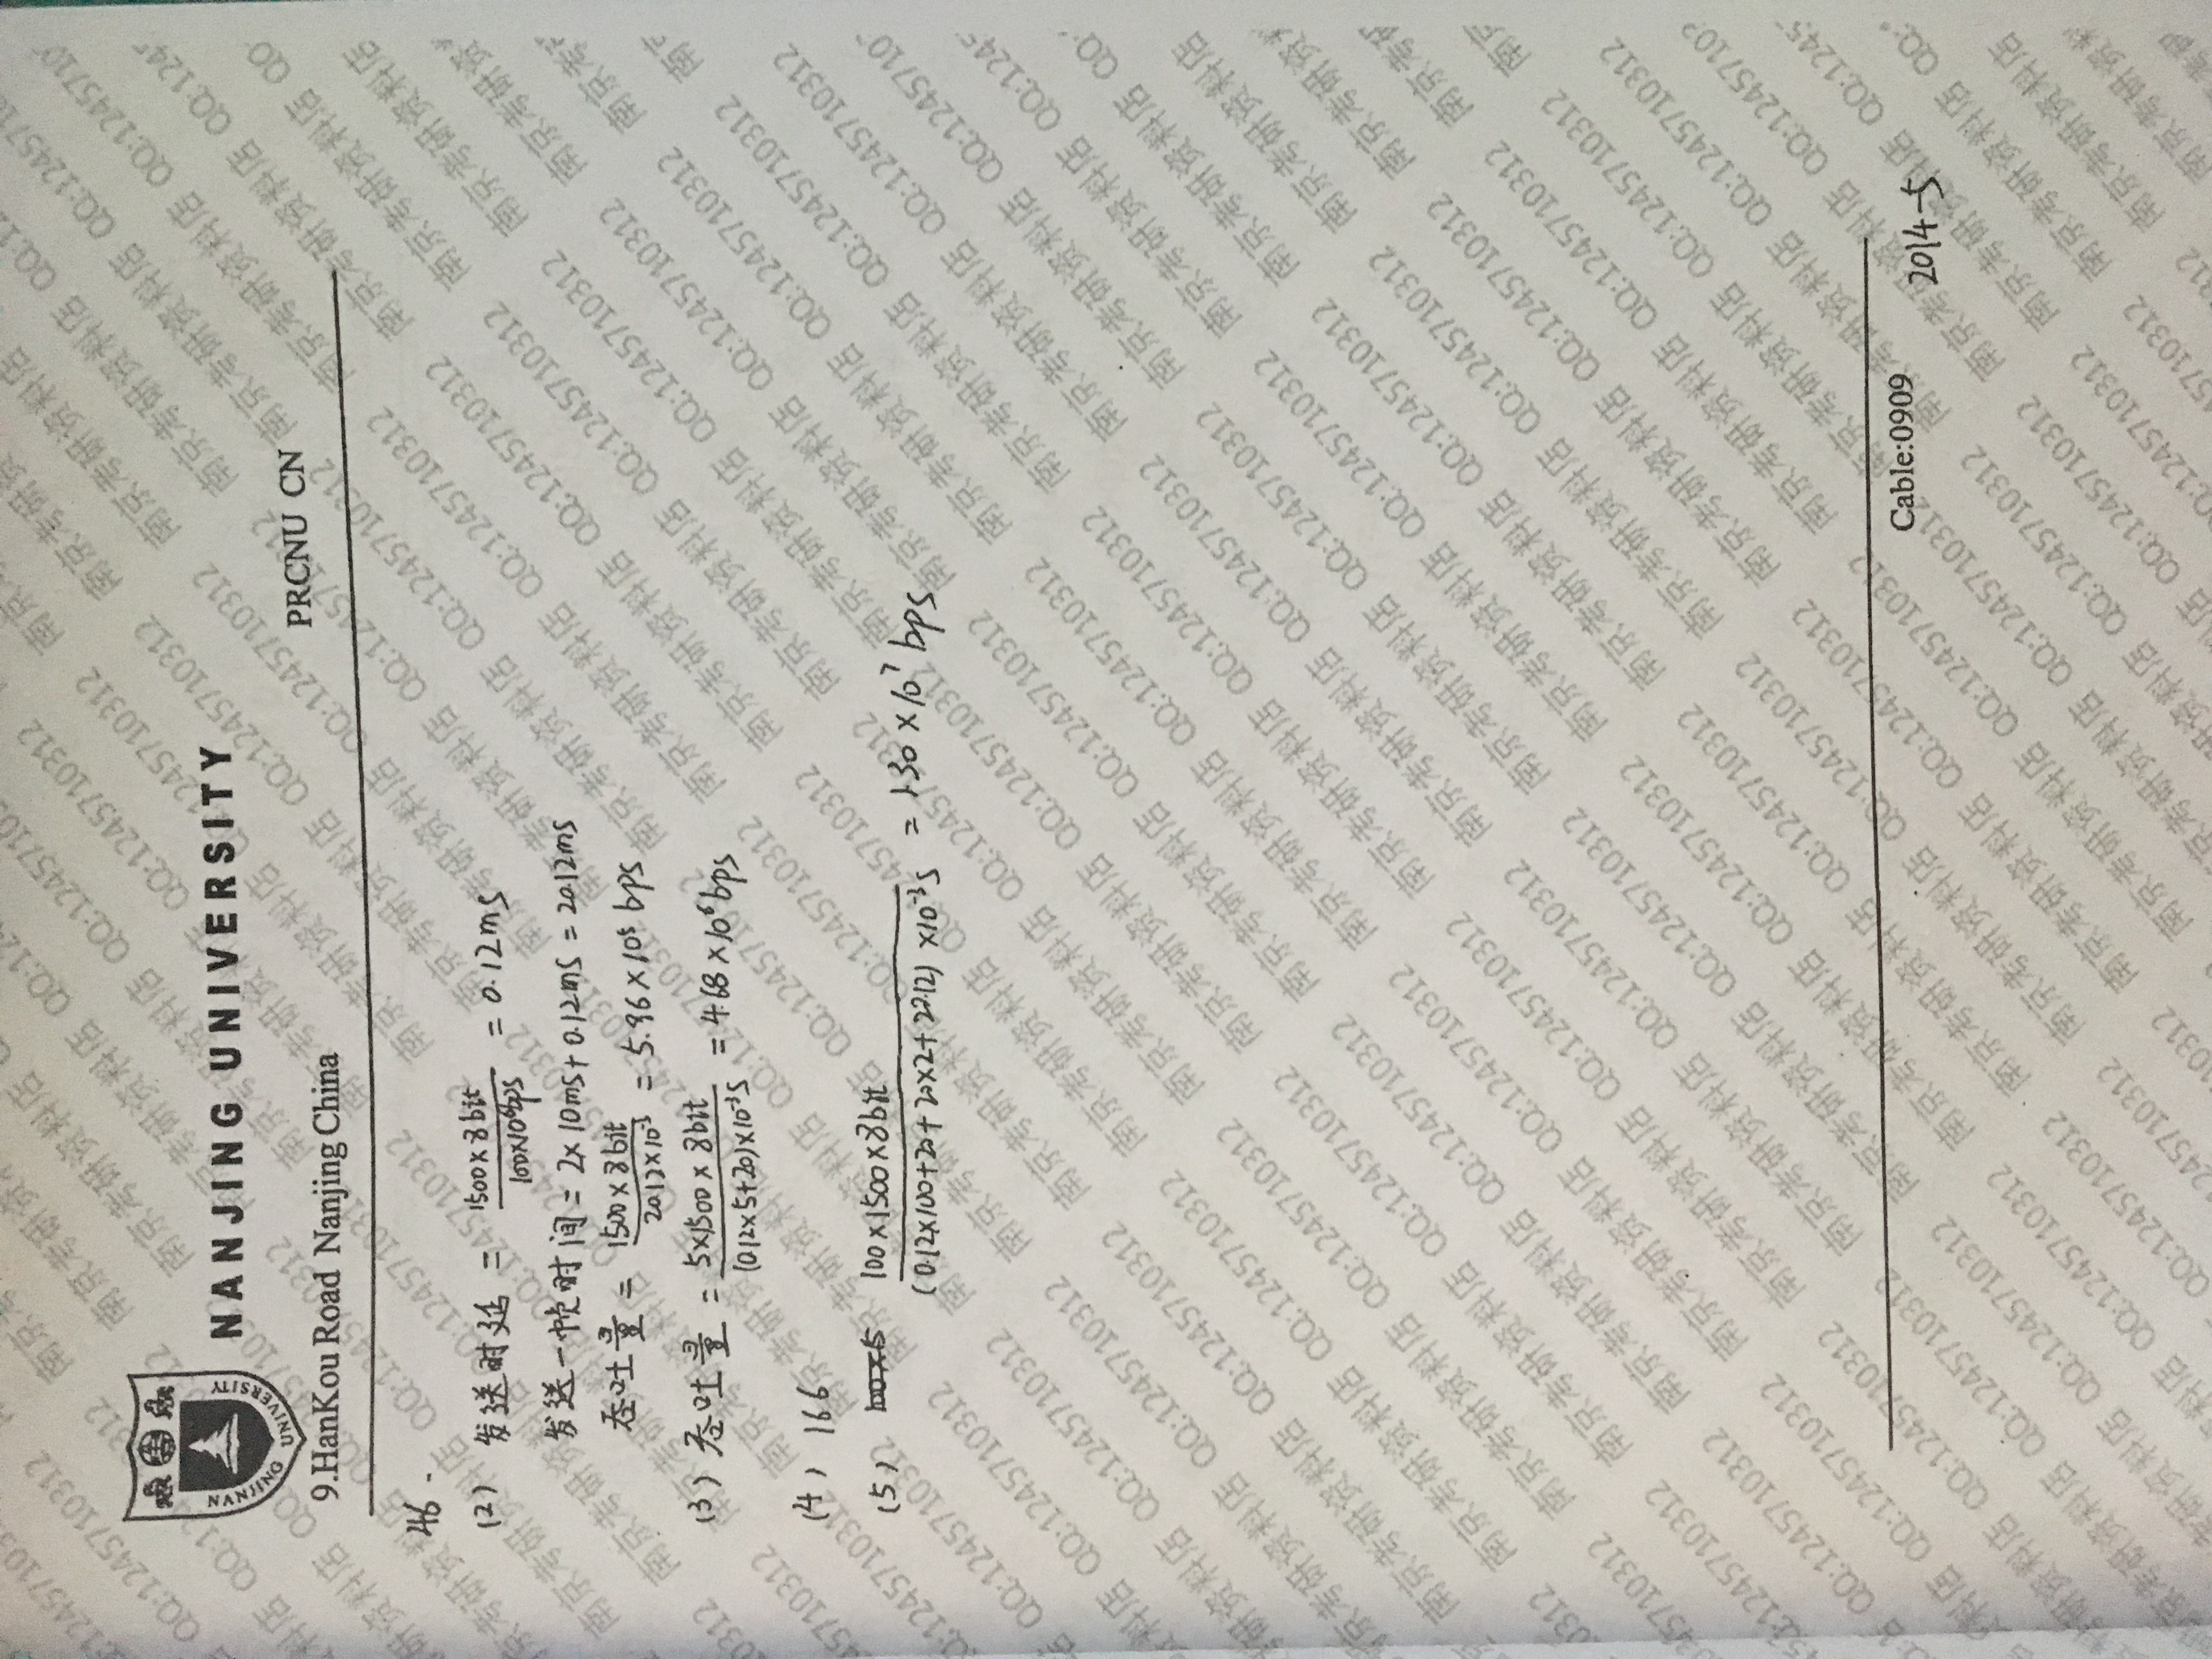 NANJING UNIVERSITY
NANJING UNIVERSITY
PRCNU CN
9.HanKou Road Nanjing China
46.
(2) 发送时延 = 1500×8bit / 100×10⁶bps = 0.12ms
发送一帧时间 = 2×10ms+0.12ms = 20.12ms
吞吐量 = 1500×8bit / 20.12×10⁻³ = 5.96×10⁵ bps
(3) 吞吐量 = 5×1500×8bit / (0.12×5+20)×10⁻³s = 4.68×10⁶bps
(4) 166
(5) 100×1500×8bit / (0.12×100+20+20×2+20.12)×10⁻³s = 1.30×10⁷ bps
Cable:0909
2014-5
南京考研资料店 QQ:1245710312